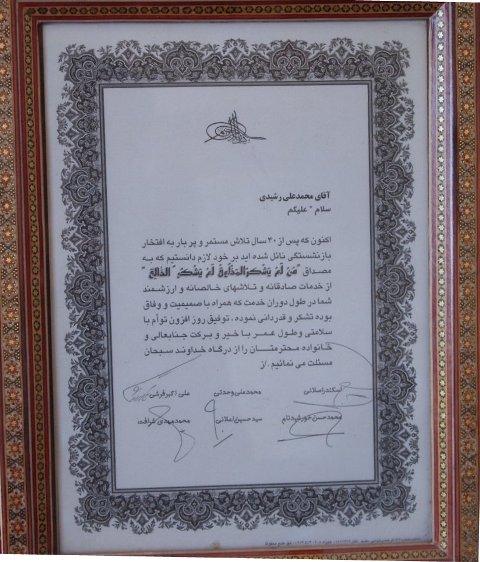 آقای محمدعلی رشیدی
سلام ٌ علیکم
اکنون که پس از ۳۰ سال تلاش مستمر و پر بار به افتخار
بازنشستگی نائل شده اید بر خود لازم دانستیم که به
مصداق "مَن لَم یَشکُرِالمَخلُوقَ لَم یَشکُرِ الخالِق"
از خدمات صادقانه و تلاشهای خالصانه و ارزشمند
شما در طول دوران خدمت که همراه با صمیمیت و وفاق
بوده تشکر و قدردانی نموده ، توفیق روز افزون توأم با
سلامتی و طول عمر با خیر و برکت جنابعالی و
خانواده محترمتان را از درگاه خداوند سبحان
مسئلت می نمائیم . از
اسکندر اصلانی محمدعلی وحدتی علی اکبر قرشی
محمدحسن خورشیدنام سید حسین املائی محمدمهدی شرافت